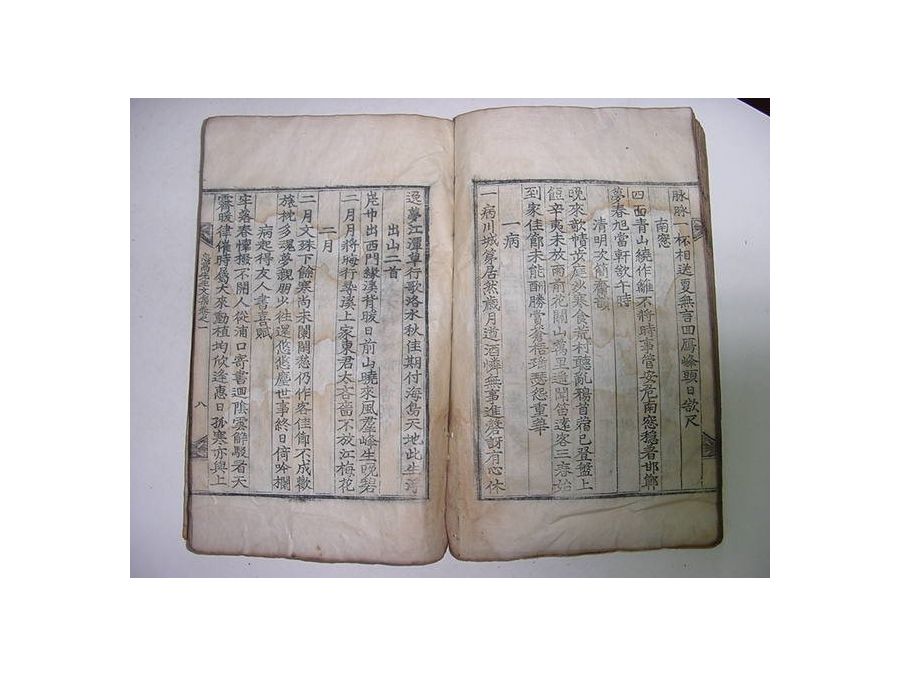 脉脉一杯相送憂無言四鴈峰頭日欲尺
南窓
四面青山繞作離不將時事當安危南窓穩着邯鄲
夢春旭當軒欲午時
清明次簡齋韻
晩來欹幘步庭沙寒食荒村聽亂鴉首蓿已登盤上
飣辛夷未放雨前花關山萬里遥聞笛逺客三春始
到家佳節未能酬勝賞蒼梧瑤瑟怨重華
一病
一病川城第居然歳月道酒憐無事進磬訝有心休
逸夢江潭草行歌洛水秋佳期付海島天地此生浮
出山二首
崑巾出西門緣溪背暖日前山曉來風羣峰生晩碧
二月月將晦行塾溪上家東君太吝嗇不放江梅花
二月
二月文殊下餘寒尚未闌閒愁仍作客佳節不成歡
旅枕多魂夢親朋少往還悠悠塵世事終日倚吟欄
病起得友人書喜賦
牢落春懷撥不開人從浦口寄書迴陰雲解駁看天
霽暖律催時爲犬來動植均欣逢惠日孤寒亦與上
先生文集卷之一
八